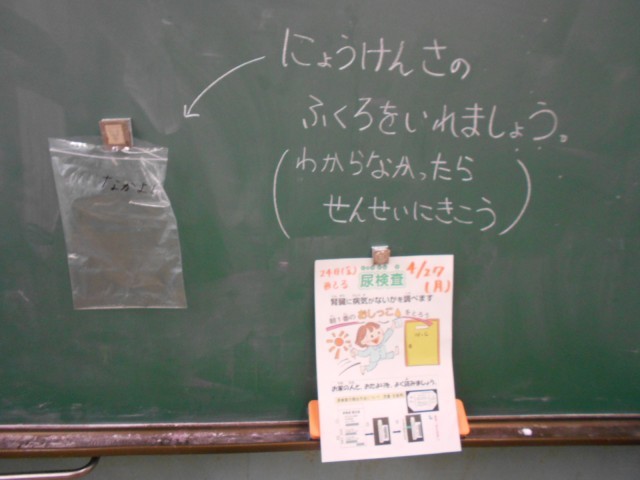 にょうけんさの
ふくろをいれましょう。
(わからなかったら
せんせいにきこう)
尿検査
4/27
(月)
腎臓に病気がないかを調べます
朝1番のおしっこを
お家の人と、おたよりを、よく読みましょう。